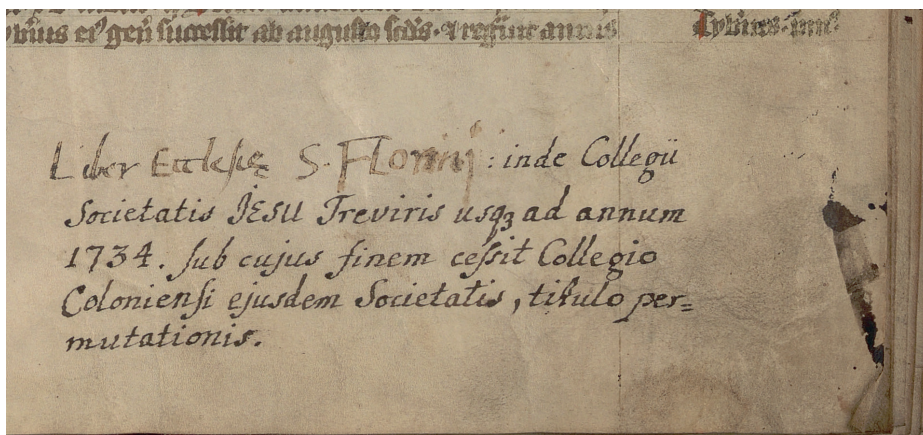 gen̄ successit ab augusto scd̄s · regn̄ annis
Liber Ecclesię S. Florini : inde Collegii
Societatis JESU Treviris usqꝫ ad annum
1734. sub cujus finem cessit Collegio
Coloniensi ejusdem Societatis, titulo per=
mutationis.